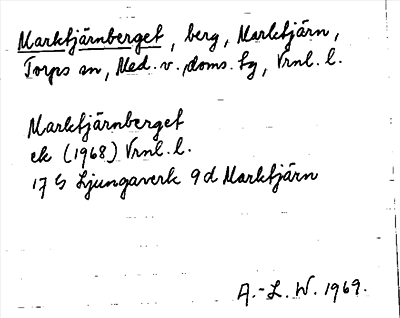 Marktjärnberget, berg, Marktjärn,
Torps sn, Med. v. doms. tg, Vrnl. l.
Marktjärnberget
ek (1968) Vrnl. l.
17 G Ljungaverk 9 d Marktjärn
A.-L. W. 1969.